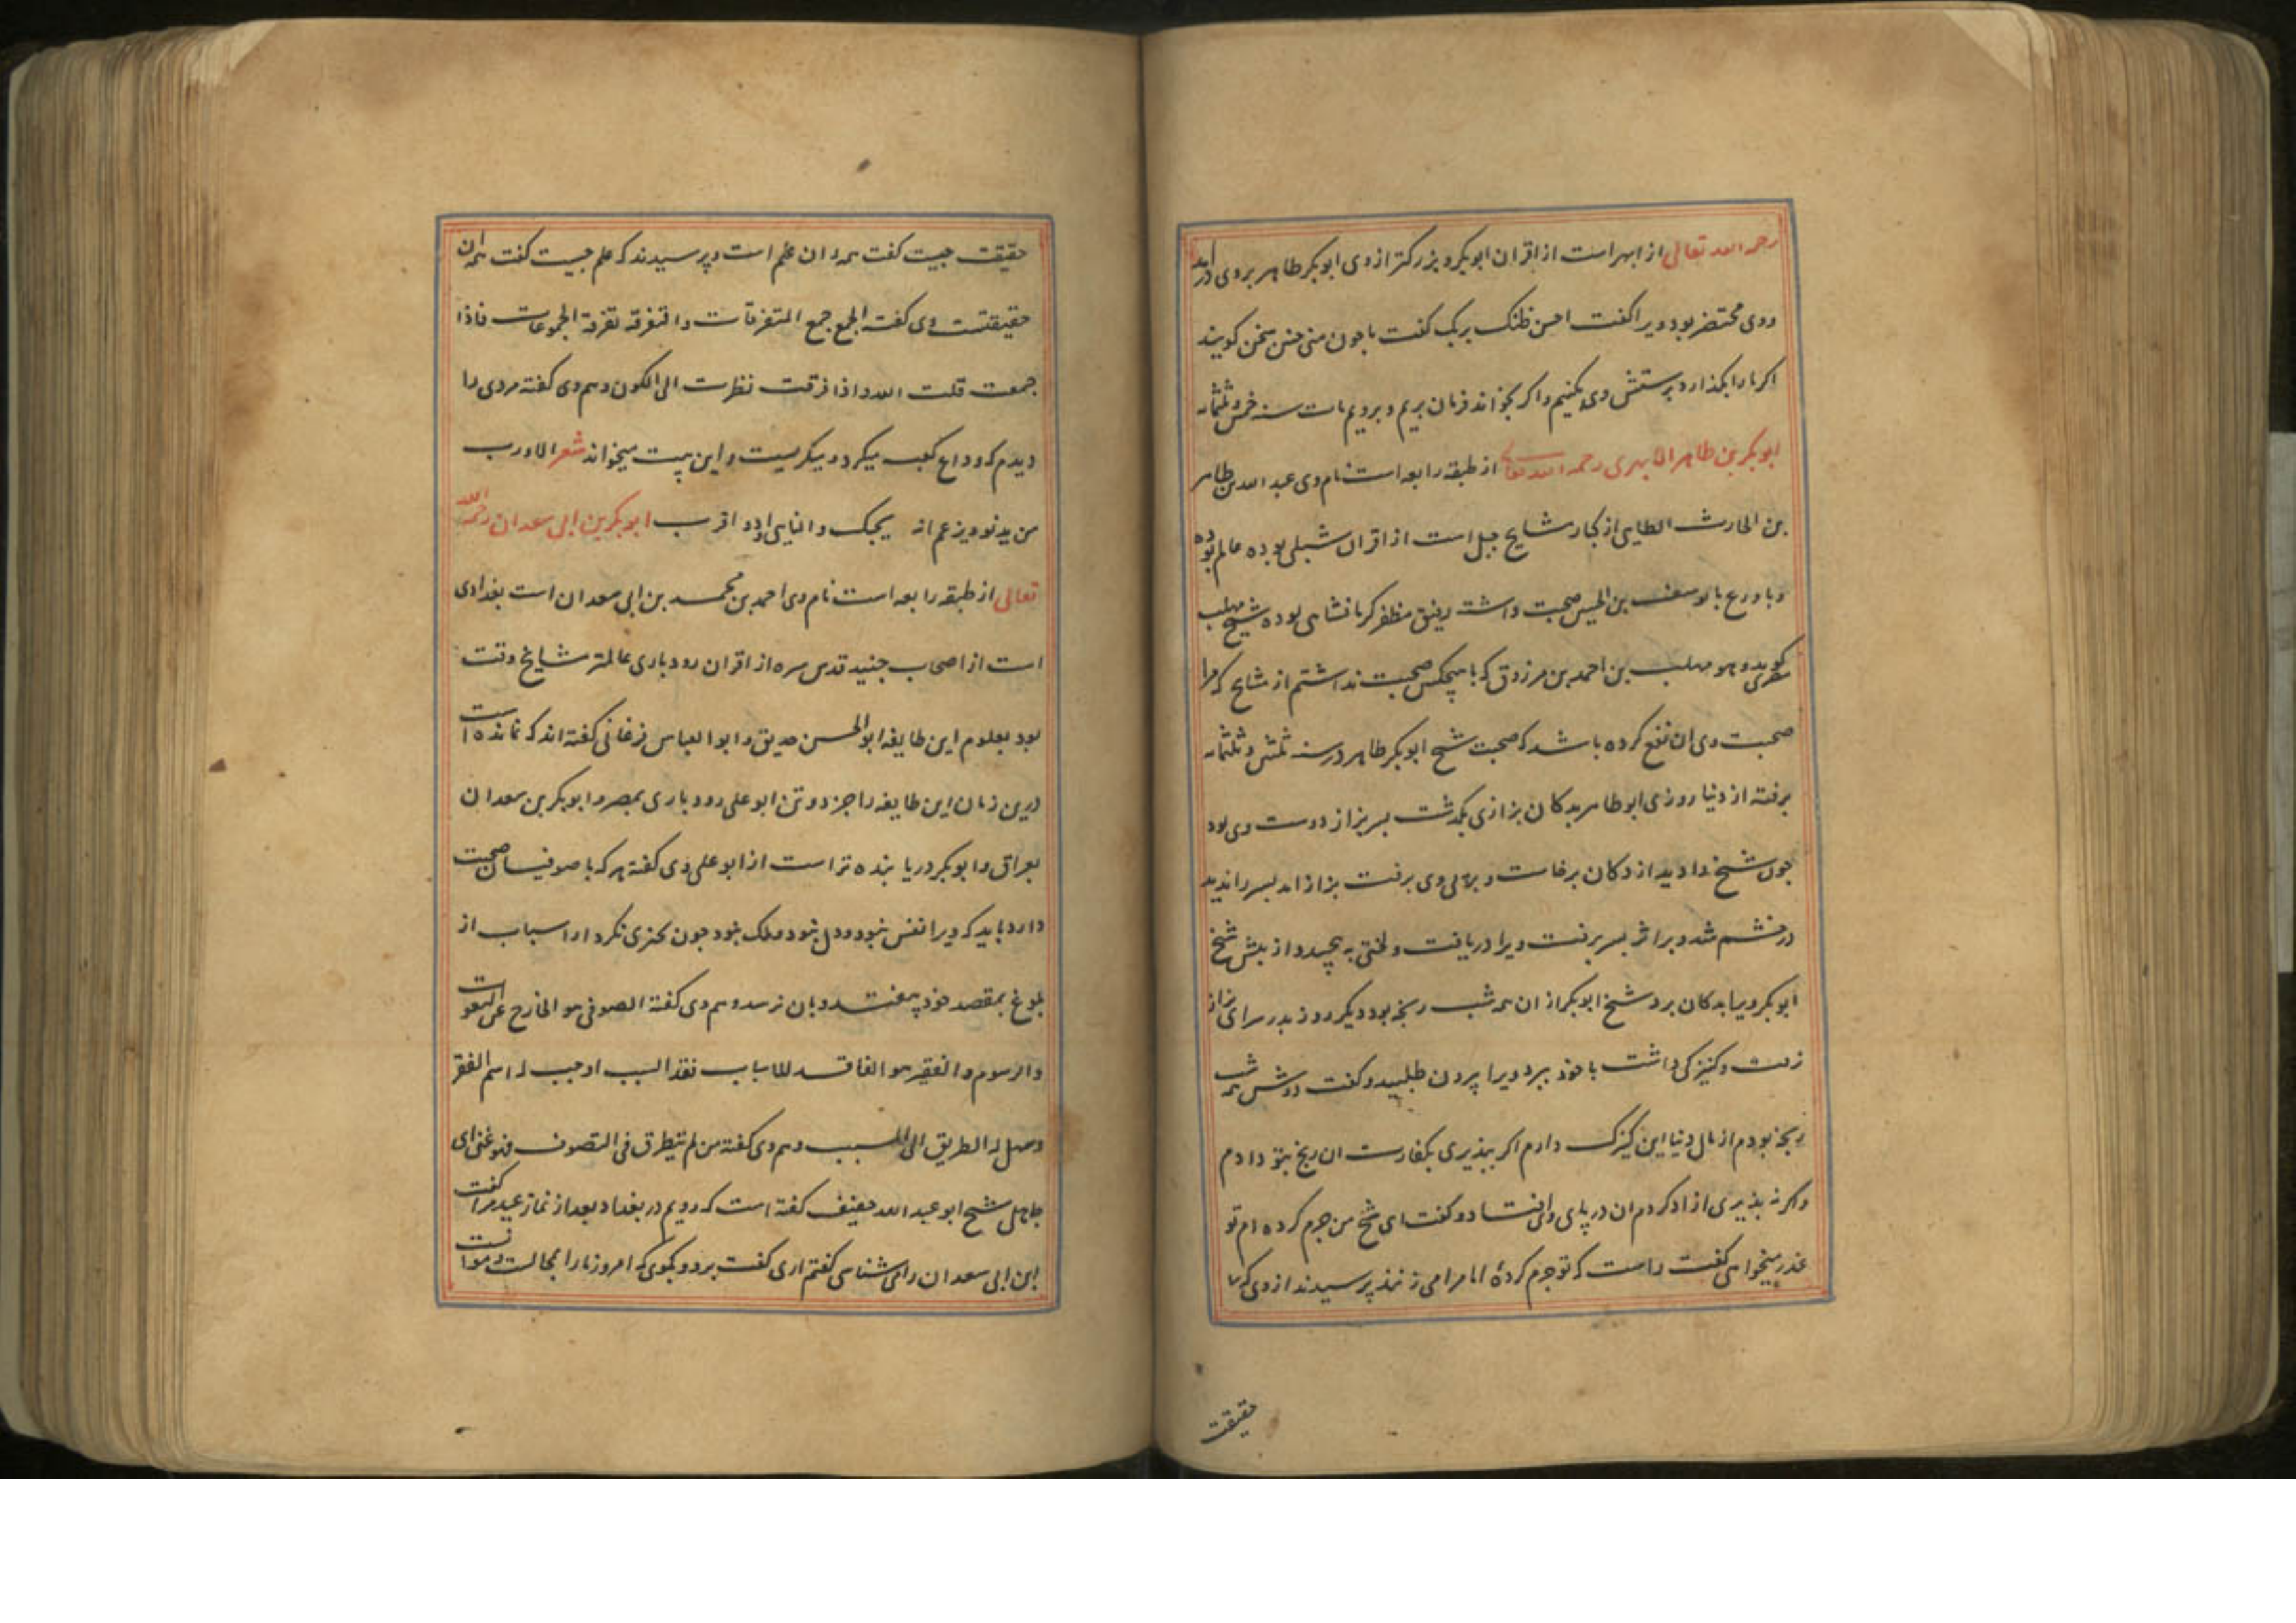 رحمه الله تعالی از ابهر است از اقران ابوبکر و بزرکتر از وی ابوبکر طاهر بر وی درآمد
و وی محتضر بود ویرا کفت احسن ظنک بربک کفت با چون منی جنین سخن کویند
اکر ما را بکذارد پرستش وی کنیم و اکر بخواند فرمان بریم و برویم مات سنه خمس و ثلثمائه
ابوبکر بن طاهر الابهری رحمه الله تعالی از طبقه رابعه است نام وی عبد الله بن طاهر
بن الحارث الطایی از کبار مشایخ جبل است از اقران شبلی بوده عالم بوده
و با ورع با یوسف بن الحسین صحبت داشت رفیق مظفر کرمانشاهی بوده شیخ مهلب
کوید و هو مهلب بن احمد بن مرزوق که با هیچکس صحبت نداشتم از مشایخ که مرا
صحبت وی ان نفع کرده باشد که صحبت شیخ ابوبکر طاهر در سنه ثلثین و ثلثمائه
برفته از دنیا روزی ابو طاهر بدکان بزازی بکذشت بسر بزاز دوست وی بود
جون شیخ را دید از دکان برخاست و بر پی وی برفت بزاز امد بسر را ندید
در خشم شد و بر اثر بسر برفت ویرا دریافت و لختی به پیچید و از پیش شیخ
ابوبکر ویرا بدکان برد شیخ ابوبکر از ان همه شب رنجه بود دیکر روز بدر سرای بزاز
رفت و کنیزکی داشت با خود ببرد ویرا بیرون طلبید و کفت دوش همه شب
رنجه بودم از مال دنیا این کنیزک دارم اکر بپذیری بکفارت ان رنج بتو دادم
و اکر نه بذیری ازاد کردم ان در پای وی افتاد و کفت ای شیخ من جرم کرده ام تو
عذر میخواهی کفت راست که تو جرم کردهٔ اما مرا می زنند پرسیدند از وی که
حقیقت
حقیقت جیست کفت همه ان علم است و پرسیدند که علم جیست کفت همه ان
حقیقتست وی کفت الجمع جمع المتفرقات و التفرقة تفرقة المجموعات فاذا
جمعت قلت الله و اذا فرقت نظرت الی الکون و هم وی کفته مردی را
دیدم که وداع کعبه میکرد و میکریست و این بیت میخواند شعر الا رب
من یدنو و یزعم انه یحبک و النایی اود و اقرب ابوبکر بن ابی سعدان رحمه الله
تعالی از طبقه رابعه است نام وی احمد بن محمد بن ابی سعدان است بغدادی
است از اصحاب جنید قدس سره از اقران رودباری عالمتر مشایخ وقت
بود بعلوم این طایفه ابو الحسن صدیق و ابو العباس فرغانی کفته اند که نمانده است
درین زمان این طایفه را جز دو تن ابو علی رودباری بمصر و ابوبکر بن سعدان
بعراق و ابوبکر دریابنده تر است از ابو علی وی کفته هر که با صوفیان صحبت
دارد باید که ویرا نفس نبود و دل نبود و ملک نبود جون بجیزی نکرد از اسباب از
بلوغ بمقصد خود بیفتد و بان نرسد و هم وی کفته الصوفی هو الخارج عن النعوت
و الرسوم و الفقیر هو الفاقد للاسباب فقد السبب اوجب له اسم الفقر
و سهل له الطریق الی المسبب و هم وی کفته من لم یتطرق فی التصوف فهو غنی ای
جاهل شیخ ابو عبد الله خفیف کفته است که رویم در بغداد بعد از نماز عید مرا کفت
ابن ابی سعدان را می شناسی کفتم اری کفت برو و بکوی که امروز ما را بمجالست و موانست